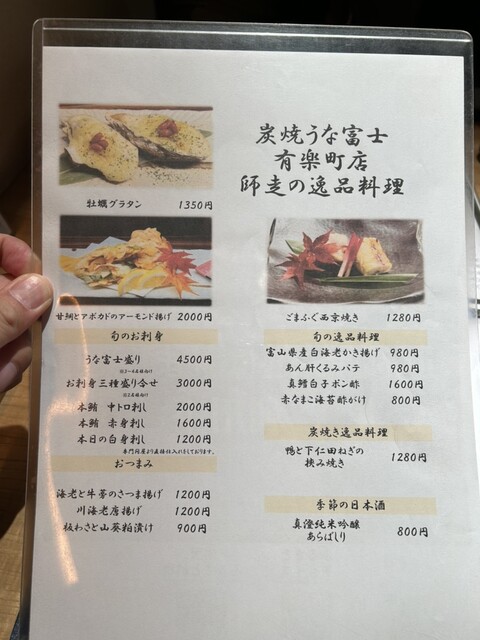 炭焼うな富士
有楽町店
師走の逸品料理
牡蠣グラタン 1350円
甘鯛とアボカドのアーモンド揚げ 2000円
旬のお刺身
うな富士盛り 4500円
お刺身三種盛り合せ 3000円
本鮪 中トロ刺し 2000円
本鮪 赤身刺し 1600円
本日の白身刺し 1200円
専門問屋より直接仕入れをしております。
おつまみ
海老と牛蒡のさつま揚げ 1200円
川海老唐揚げ 1200円
板わさと山葵粕漬け 900円
ごまふぐ西京焼き 1280円
旬の逸品料理
富山県産白海老かき揚げ 980円
あん肝くるみパテ 980円
真鱈白子ポン酢 1600円
赤なまこ海苔酢がけ 800円
炭焼き逸品料理
鴨と下仁田ねぎの
挟み焼き 1280円
季節の日本酒
真澄純米吟醸
あらばしり 800円